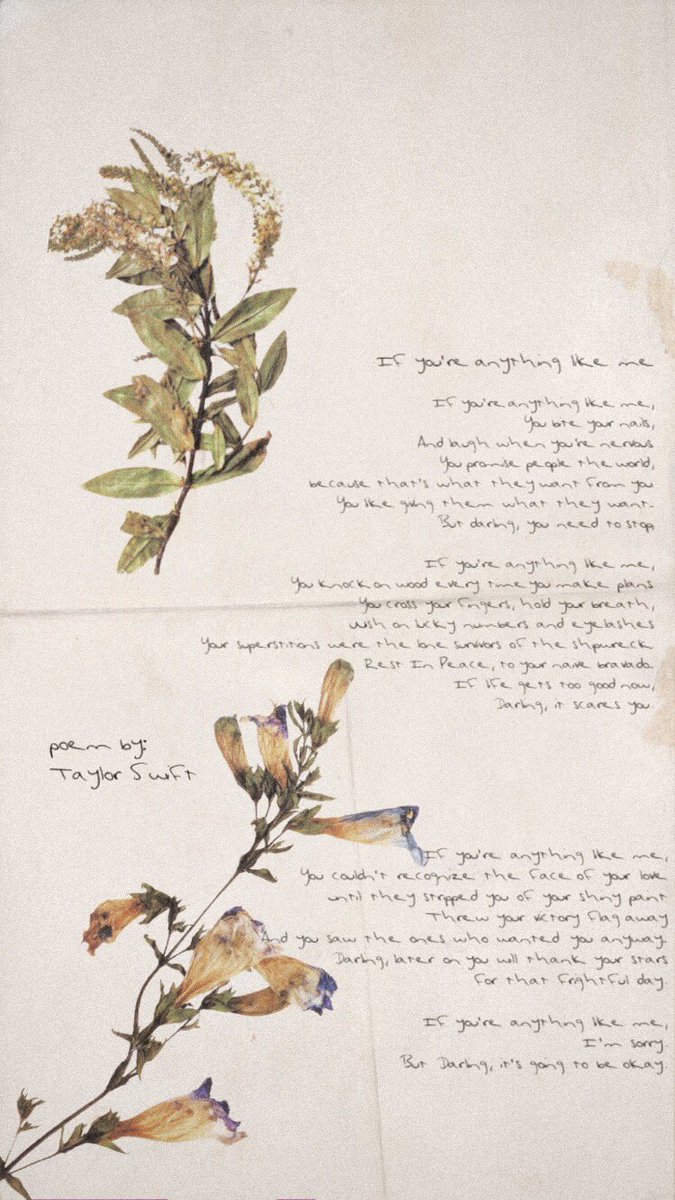 If you're anything like me
If you're anything like me,
You bite your nails,
And laugh when you're nervous
You promise people the world,
because that's what they want from you
You like giving them what they want.
But darling, you need to stop
If you're anything like me,
You knock on wood every time you make plans
You cross your fingers, hold your breath,
wish on lucky numbers and eyelashes
Your superstitions were the lone survivors of the shipwreck
Rest In Peace, to your naive bravado
If life gets too good now,
Darling, it scares you.
poem by:
Taylor Swift
If you're anything like me,
You couldn't recognize the face of your love
until they stripped you of your shiny paint
Threw your victory flag away
And you saw the ones who wanted you anyway.
Darling, later on you will thank your stars
for that frightful day.
If you're anything like me,
I'm sorry.
But Darling, it's going to be okay.